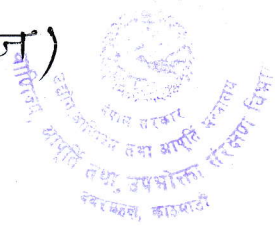 ज)
नेपाल सरकार
उद्योग, वाणिज्य तथा आपूर्ति मन्त्रालय
वाणिज्य, आपूर्ति तथा उपभोक्ता संरक्षण विभाग
बबरमहल, काठमाडौं